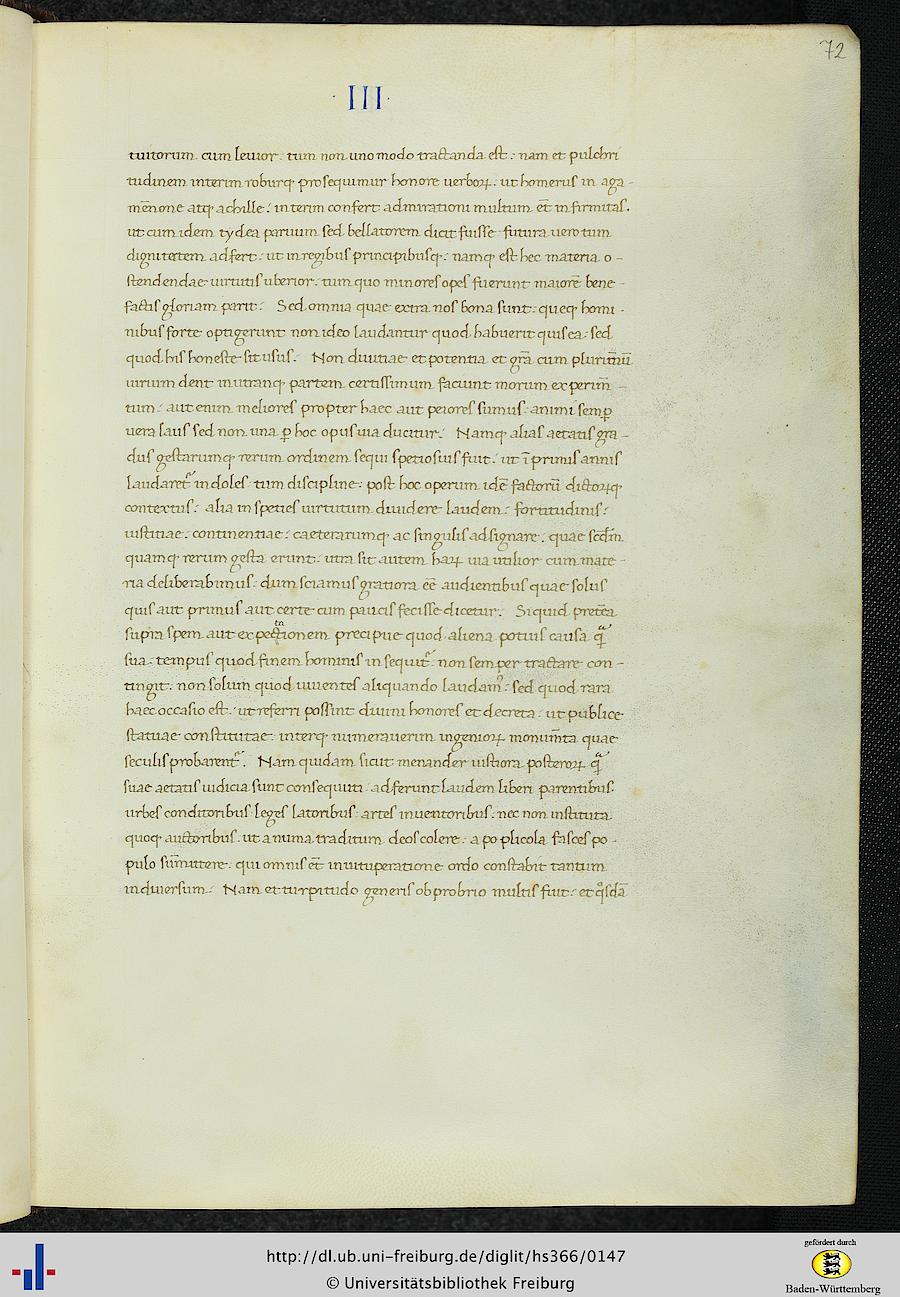 72
· III ·
tuitorum cum leuior: tum non uno modo tractanda est: nam et pulchri
tudinem interim roburq; prosequimur honore uerboꝝ: ut homerus in aga-
mēnone atq; achille: interim confert admirationi multum ēt infirmitas.
ut cum idem tydea paruum sed bellatorem dicit fuisse futura uero tum
dignitatem adfert: ut in regibus principibusq;: namq; est hec materia o-
stendendae uirtutis uberior: tum quo minores opes fuerunt maiorē bene-
factis gloriam parit: Sed omnia quae extra nos bona sunt: queq; homi-
nibus forte optigerunt non ideo laudantur quod habuerit quis ea: sed
quod his honeste sit usus: Non diuitiae et potentia et grā cum plurimū
uirium dent in utranq; partem certissimum faciunt morum experim̄-
tum: aut enim meliores propter haec aut peiores sumus: animi semꝑ
uera laus sed non una ꝑ hoc opus uia ducitur: Namq; alias aetatis gra-
dus gestarumq; rerum ordinem sequi spetiosius fuit: ut ī primis annis
laudaret᷑ indoles: tum discipline: post hoc operum idē factorū dictoꝝq;
contextus: alia in speties uirtutum diuidere laudem: fortitudinis:
iustitiae: continentiae: caeterarumq; ac singulis adsignare: quae scdm̄
quamq; rerum gesta erunt: utra sit autem haꝝ uia utilior cum mate-
ria deliberabimus: dum sciamus gratiora eē audientibus quae solus
quis aut primus aut certe cum paucis fecisse dicetur: Siquid preteā
supra spem aut expectionem precipue quod aliena potius causa q̄
sua: tempus quod finem hominis insequit᷑: non semper tractare con-
tingit: non solum quod uiuentes aliquando laudamꝰ: sed quod rara
haec occasio est: ut referri possint diuini honores et decreta: ut publice
statuae constitutae: interq; numerauerim ingenioꝝ monum̄ta quae
seculis probarent᷑: Nam quidam sicut menander iustiora posteroꝝ q̄
suae aetatis iudicia sunt consequuti: adferunt laudem liberi parentibus:
urbes conditoribus leges latoribus: artes inuentoribus: nec non instituta
quoq; auctoribus: ut a numa traditum deos colere: a poplicola fasces po-
pulo sum̄ittere: qui omnis ēt in uituperatione ordo constabit tantum
in diuersum: Nam et turpitudo generis obprobrio multis fuit: et q̊sdā
http://dl.ub.uni-freiburg.de/diglit/hs366/0147
© Universitätsbibliothek Freiburg
gefördert durch
Baden-Württemberg